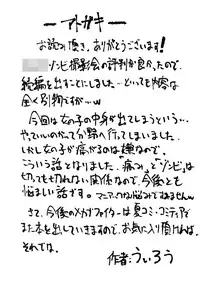 ―アトガキ―
お読み頂き、ありがとうございます!
ゾンビ撮影会の評判が良かったので、
続編を出すことにしました…といっても内容は
全く別物ですが…w
今回は女の子の中身が出てしまうという…
やっていいのか?てか際へ行ってしまいました…
しかし女の子が痛がるのは嫌なので、
こういう話となりました。「痛み」と「ゾンビ」は
切っても切れない関係なので、今後とも
悩ましい話です。マニアックな悩みですみません。
さて、今後のメガファイターは夏コミ・コミティアで
また本を出していきますので、お気に入り頂ければ、
それでは。
作者:ういろう